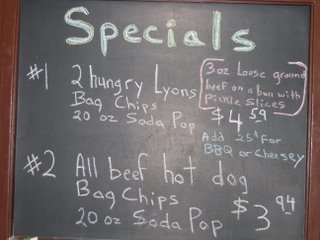 Specials
#1 2 hungry Lyons
Bag Chips
20 oz Soda Pop
3 oz Loose ground
beef on a bun with
Pickle Slices
$4 59
Add 25¢ For
BBQ or Cheesey
#2 All beef hot dog
Bag Chips
20 oz Soda Pop
$3 94